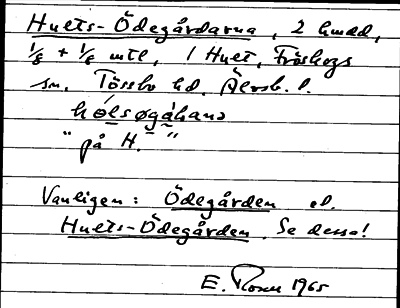 Hults-Ödegårdarna, 2 hmd,
1/8 + 1/8 mtl, 1 Hult, Fröskogs
sn. Tössbo hd. Älvsb. l.
hólsøgàhana
"på H."
Vanligen: Ödegården el.
Hults-Ödegården. Se dessa!
E. Rosell 1965